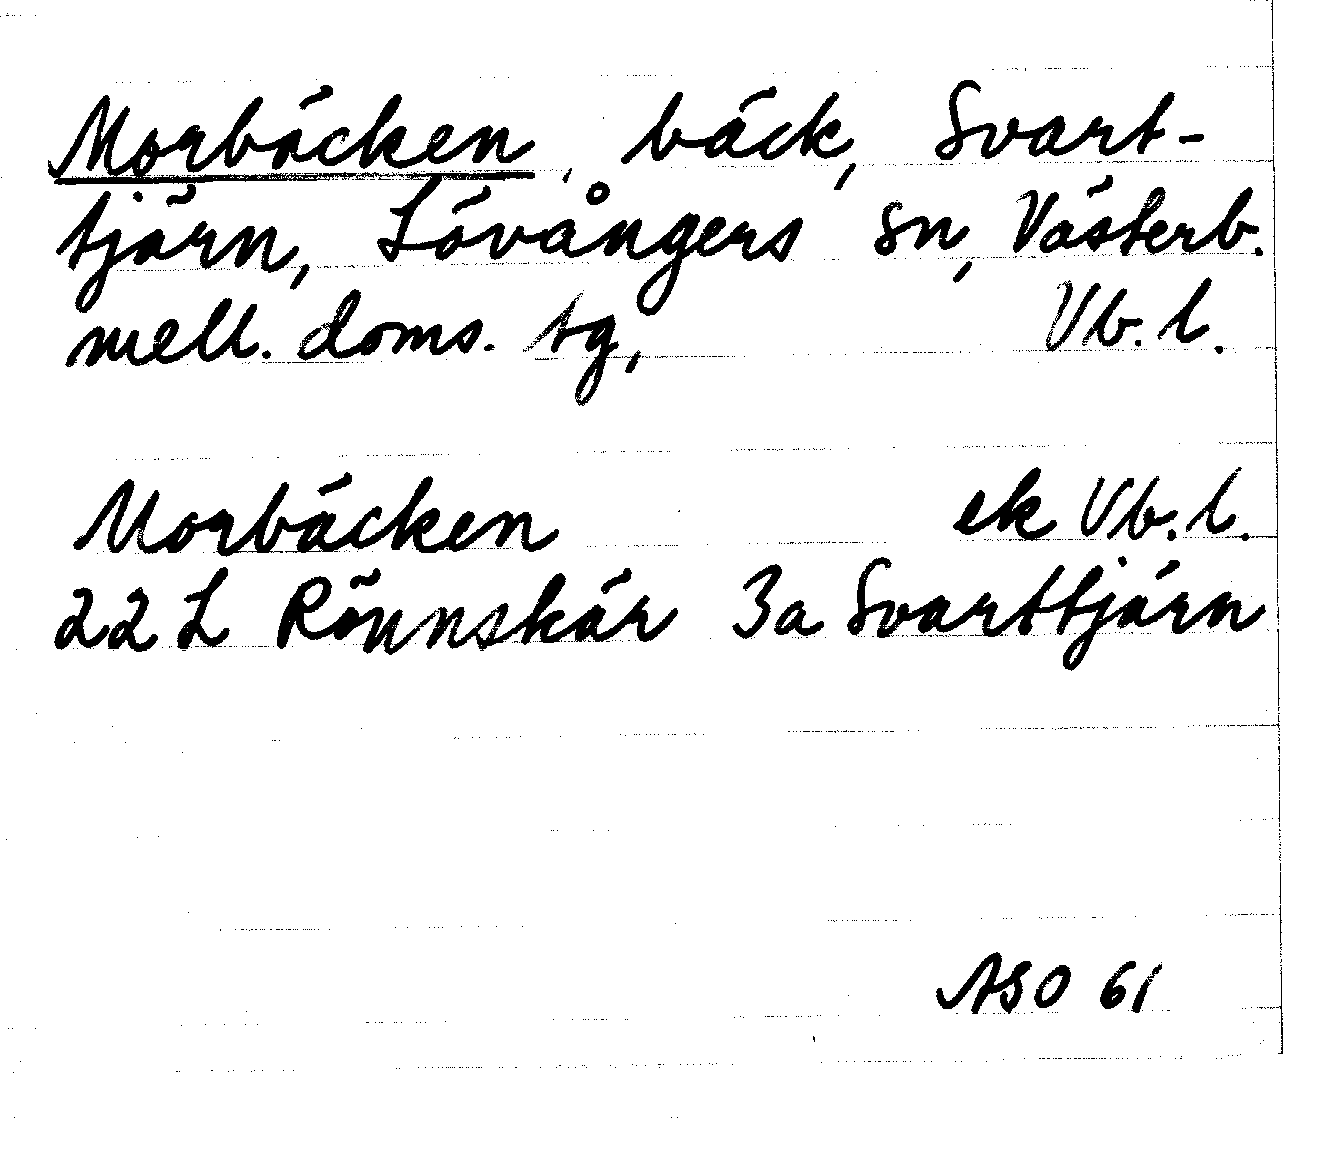 Morbäcken, bäck, Svart-
tjärn, Lövångers sn, Västerb.
mell. doms. tg, Vb. l.
Morbäcken ek Vb. l.
22 L Rönnskär 3a Svarttjärn
ASO 61